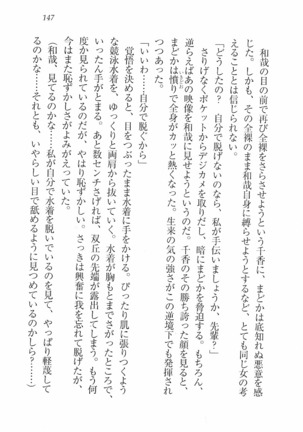 147
　和哉の目の前で再び全裸をさらさせようとする千香に、まどかは底知れぬ悪意を感
じた。しかも、その全裸のまま和哉自身に縛らせようとするなど、とても同じ女の考
えることとは信じられない。
「どうしたの？　自分で脱げないのなら、私が手伝いましょうか、先輩？」
　さりげなくポケットからデジカメを取りだし、暗にまどかを脅迫する。もちろん、
逆らえばあの映像を和哉に見せようというのだ。千香のその勝ち誇った顔を見ると、
まどかは憤りで全身がカッと熱くなった。生来の気の強さがこの逆境下でも発揮され
つつあった。
「いいわ……自分で脱ぐから」
　覚悟を決めると、目をつぶったまま水着に手をかける。ぴったり肌に張りつくよう
な競泳水着を、ゆっくりと両肩から抜いていく。水着が胸もとまでさがったところで、
いったん手がとまる。あと数センチさげれば、双丘の先端が露出してしまう。もう何
度か見られているのだが、やはり恥ずかしい。さっきは興奮に我を忘れて脱げたが、
今はまた恥ずかしさがよみがえっていた。
（和哉、見てるのかな……私が自分で水着を脱いでいるのを見て、やっぱり軽蔑して
るのかな……それとも、いやらしい目で舐めるように見つめているのかしら？……）